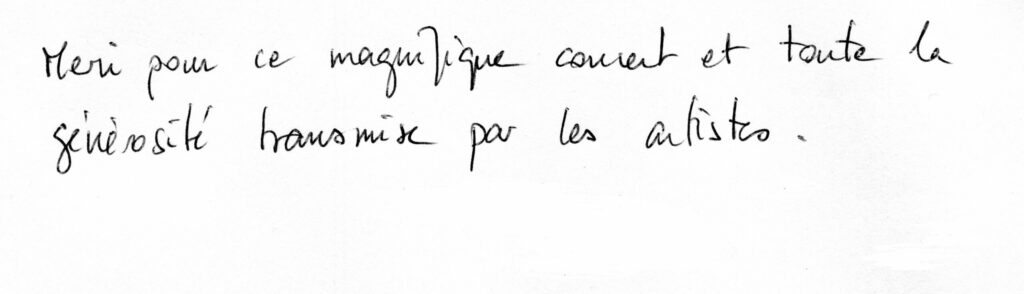 Merci pour ce magnifique concert et toute la
générosité transmise par les artistes.